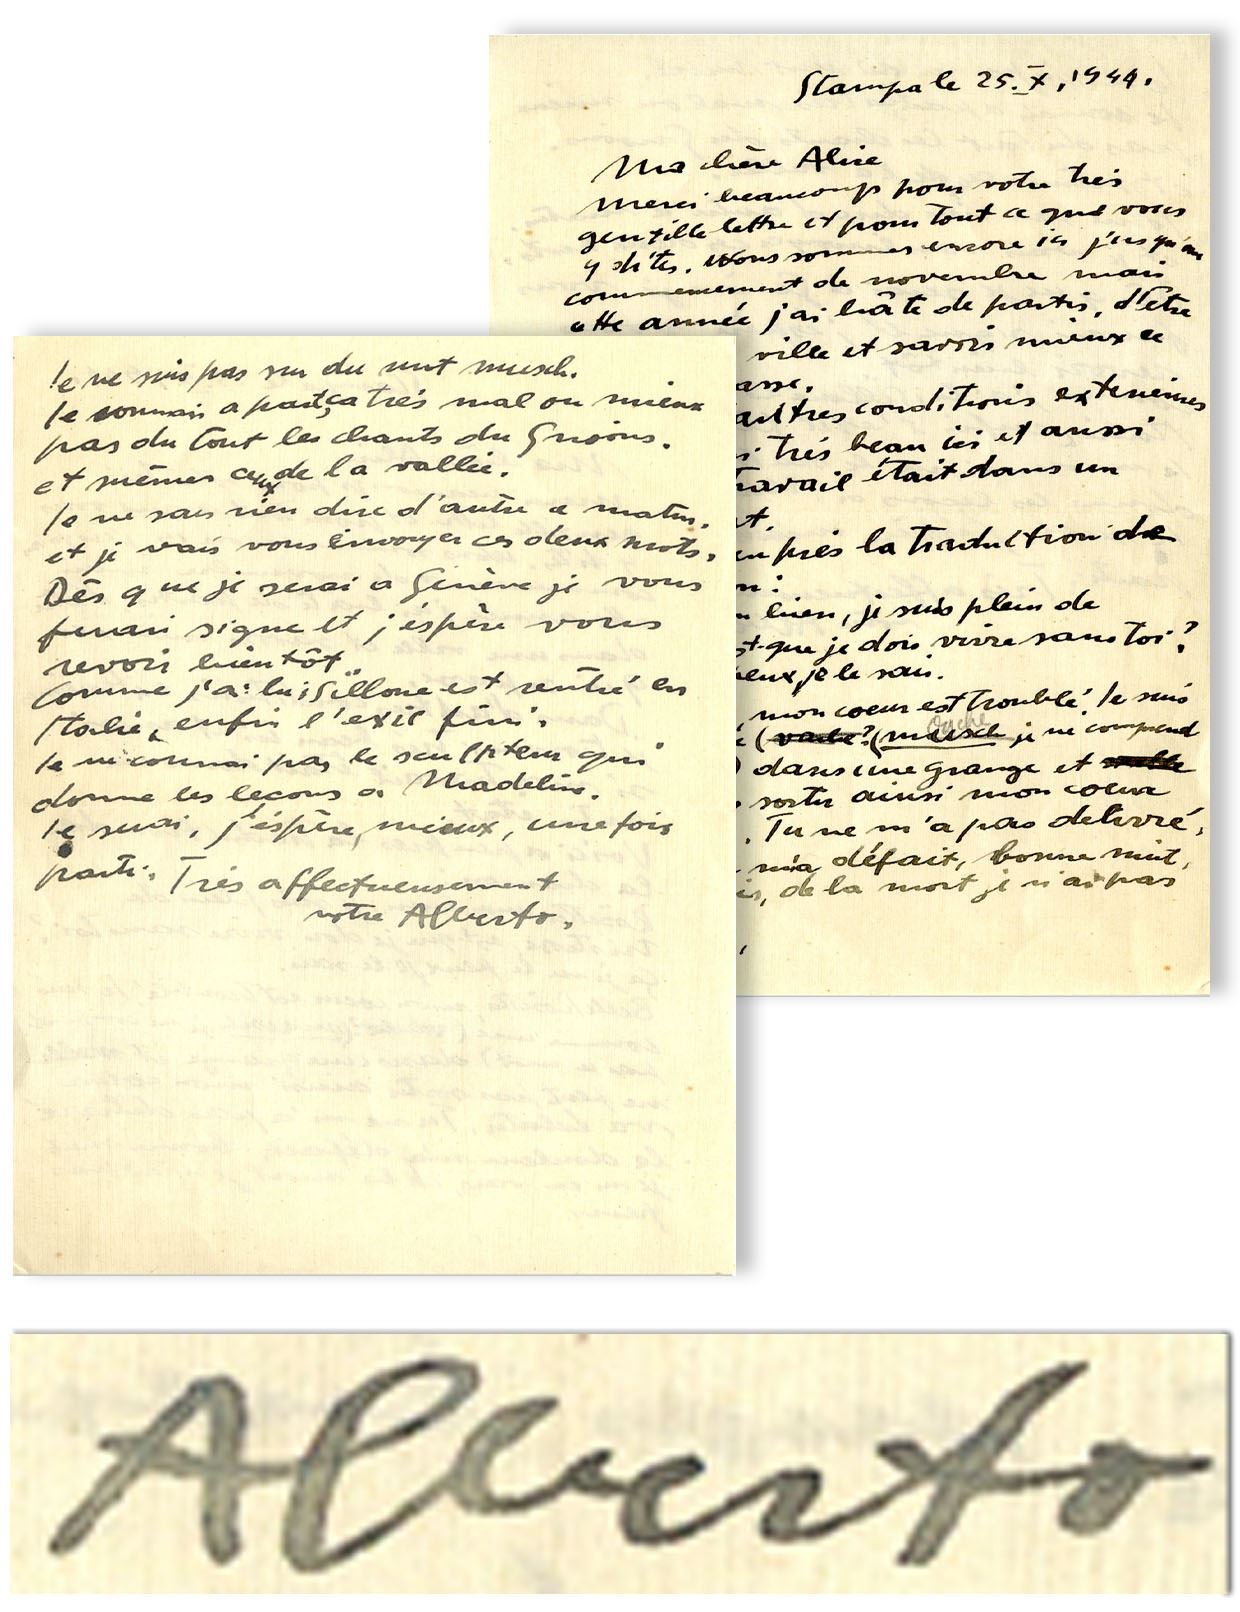 Stampa le 25.X, 1944.
Ma chère Alice
Merci beaucoup pour votre très
gentille lettre et pour tout ce que vous
y dites. Nous sommes encore ici jusqu'au
commencement de novembre mais
cette année j'ai hâte de partir, d'être
ville et savoir mieux ce
asse.
autres conditions exterieures
très beau ici et aussi
travail était dans un
t.
près la traduction de
bien, je suis plein de
est-que je dois vivre sans toi?
eux, je le sais.
mon coeur est troublé. Je suis
(musch je ne comprend
dans une grange et
sortir ainsi mon coeur
Tu ne m'a pas delivré,
m'a défait, bonne nuit,
is, de la mort je n'ai pas
Je ne suis pas sur du mot musch.
Je connais a part ça très mal ou mieux
pas du tout les chants du Grisons.
et mêmes ceux de la vallée.
Je ne sais rien dire d'autre ce matin.
et je vais vous envoyer ces deux mots,
Dès que je serai a Genève je vous
ferai signe et j'éspère vous
revoir bientôt.
Comme j'ai lu, Sillone est rentré en
Italie, enfin l'exil fini.
Je ne connai pas le sculpteur qui
donne les leçons a Madeline.
Je serai, j'éspère, mieux, une fois
parti. Très affectueusement
votre Alberto.
Alberto